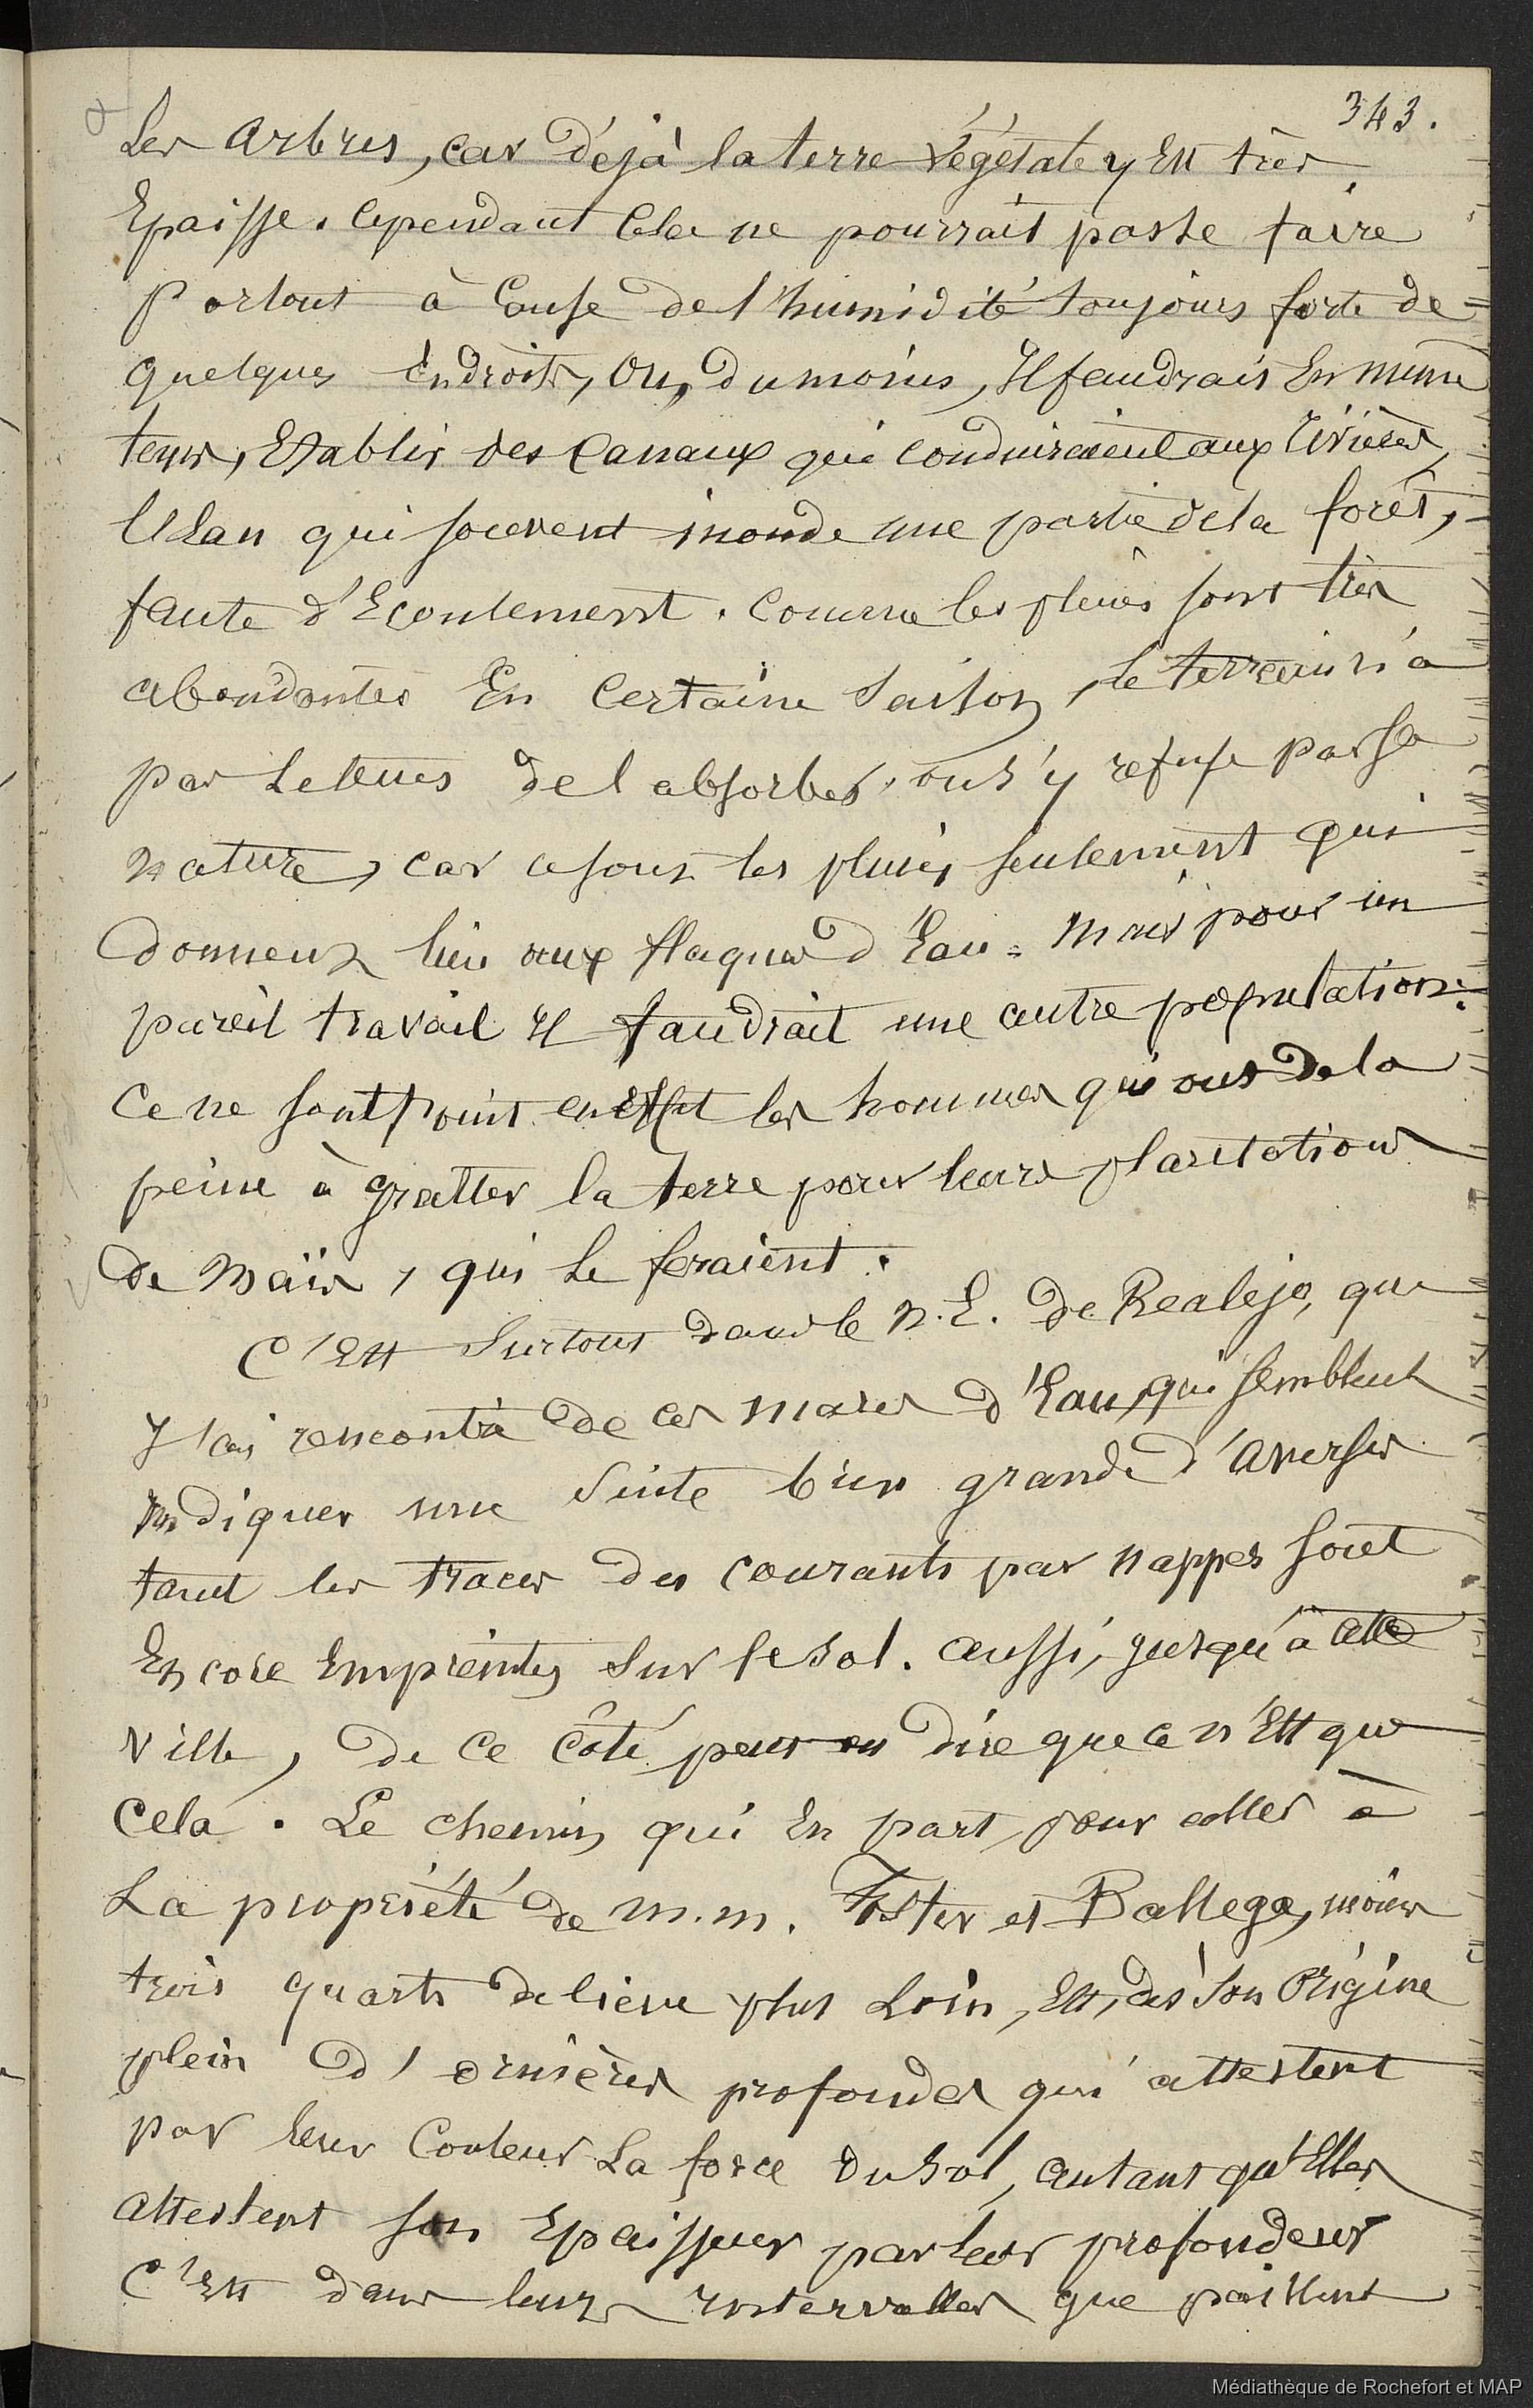 343.
Les arbres, car déjà la terre végétale y Est très
Epaisse. Cependant Cela ne pourrait pas se faire
partout à Cause de l'humidité toujours forte de
quelques Endroits, Ou, du moins, Il faudrait En même
tems, Etablir des Canaux qui Conduiraient aux rivières,
l'Eau qui souvent inonde une partie de la forêt,
faute d'Ecoulement. Comme les pluies sont très
abondantes En Certaine Saison, le terrain n'a
pas Le tems de l'absorber, ou s'y refuse par sa
nature, car ce sont les pluies seulement qui
donnent lieu aux flaques d'Eau. Mais pour un
pareil travail Il faudrait une autre population.
Ce ne sont point en effet les hommes qui ont de la
peine à gratter la terre pour leurs plantations
de maïs, qui le feraient.
C'Est Surtout dans le N.E. de Realejo, que
J'ai rencontré de ces mares d'Eau, qui semblent
indiquer une Suite bien grande d'averses
tant les traces des courants par nappes sont
Encore Empreintes Sur le sol. aussi, jusqu'à cette
Ville, de ce côté peut on dire que ce n'Est que
Cela. Le chemin qui En part pour aller à
La propriété de m.m. Foster et Ballega, moins
trois quarts de lieue plus Loin, Est, dès son Origine
plein d'ornières profondes qui attestent
par leur Couleur La force du sol, autant qu'Elles
attestent son Epaisseur par leur profondeur
C'Est dans leurs intervalles que paissent
Médiathèque de Rochefort et MAP